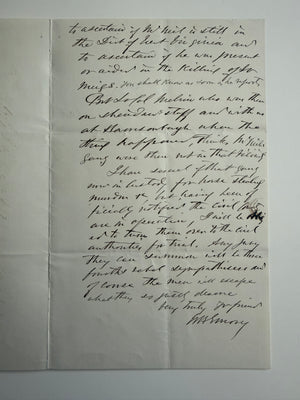 to ascertain if McNeil is still in
the Dist of West Virginia and
to ascertain if he was present
or aided in the Killing of Lt
Meigs. You shall know as soon as he reports
But Lt Col McEwin who was then
on Sheridan's staff and with us
at Harrisonburgh when the
thing happened, thinks McNeils
gang were then not in that vicinity
I have several of that gang
now in custody, for horse stealing
murder &c, but having been of-
ficially notified the Civil
are in operation, I will be
to turn them over to the civil
authorities for trial. Any jury
they can summon will be three
fourths rebel sympathisers and
of course the men will escape
what they so justly deserve
Very truly yr friend
W H Emory